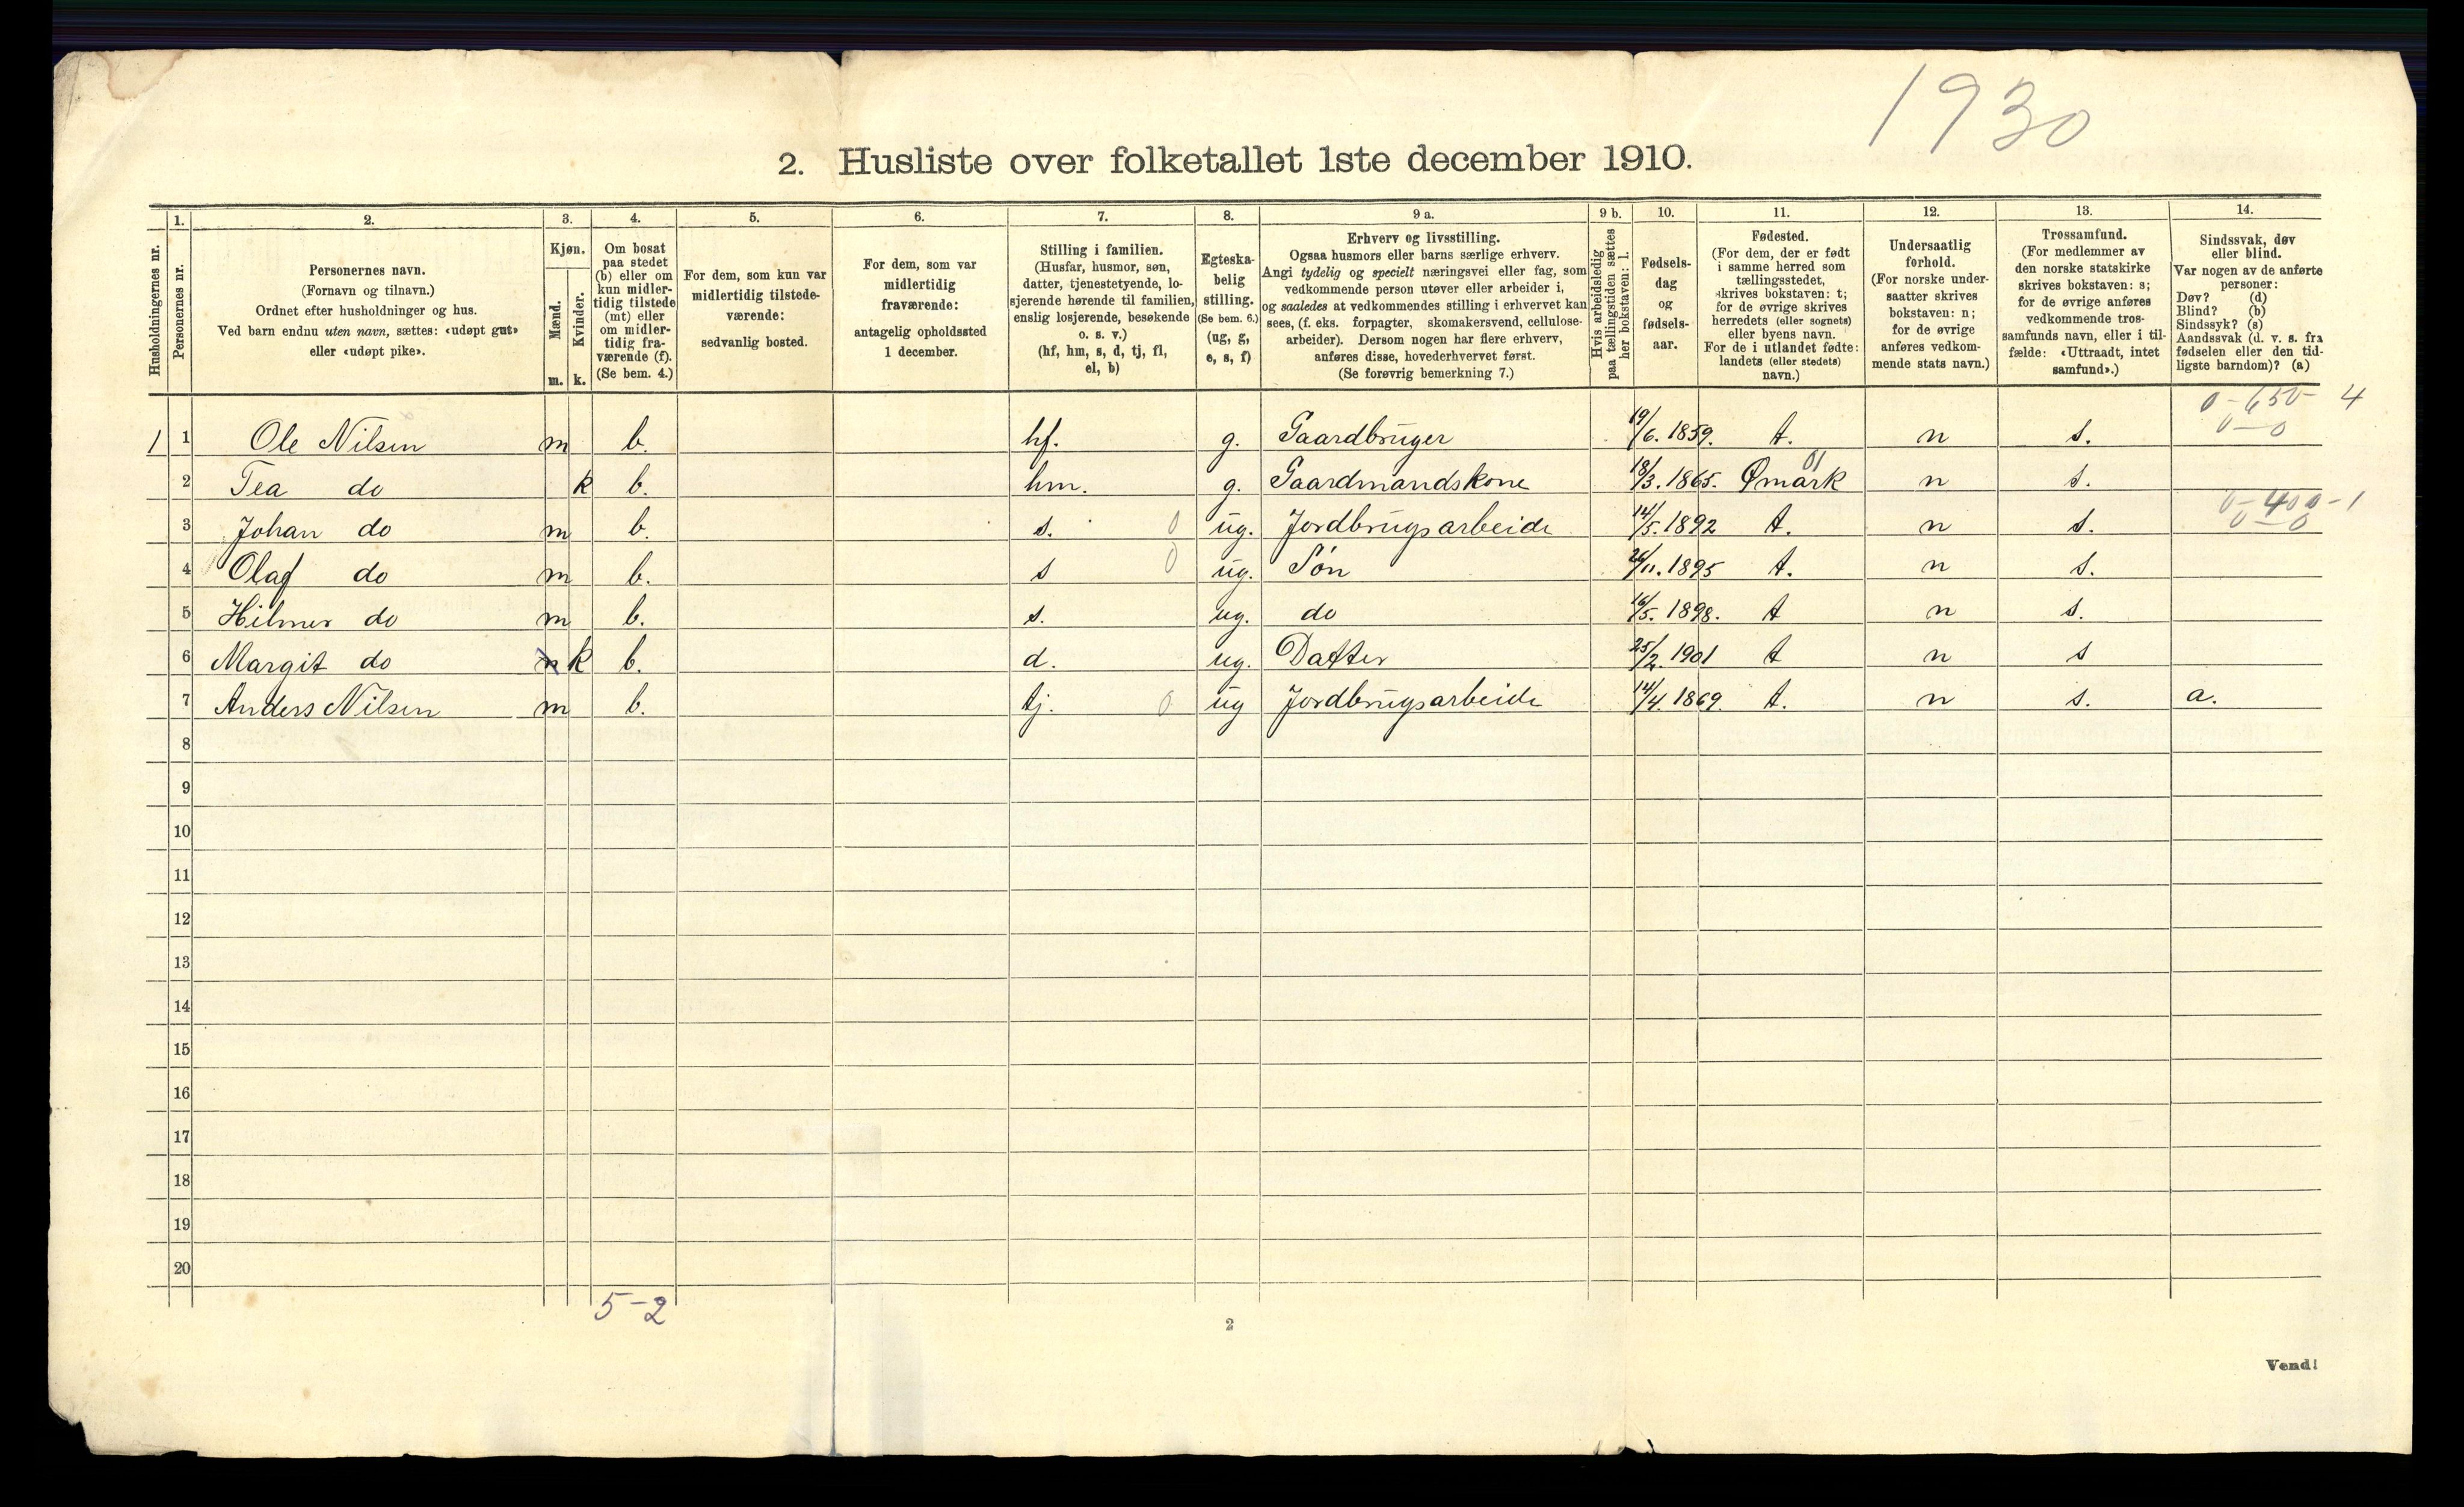 1930
2. Husliste over folketallet 1ste december 1910.
Husholdningernes nr.
1.
Personernes nr.
2.
Personernes navn.
(Fornavn og tilnavn.)
Ordnet efter husholdninger og hus.
Ved barn endnu uten navn, sættes: «udøpt gut»
eller «udøpt pike».
3.
Kjøn.
Mænd.
Kvinder.
m. k.
4.
Om bosat
paa stedet
(b) eller om
kun midler-
tidig tilstede
(mt) eller
om midler-
tidig fra-
værende (f).
(Se bem. 4.)
5.
For dem, som kun var
midlertidig tilstede-
værende:
sedvanlig bosted.
6.
For dem, som var
midlertidig
fraværende:
antagelig opholdssted
1 december.
7.
Stilling i familien.
(Husfar, husmor, søn,
datter, tjenestetyende, lo-
sjerende hørende til familien,
enslig losjerende, besøkende
o. s. v.)
(hf, hm, s, d, tj, fl,
el, b)
8.
Egteska-
belig
stilling.
(Se bem. 6.)
(ug, g,
e, s, f)
9 a.
Erhverv og livsstilling.
Ogsaa husmors eller barns særlige erhverv.
Angi tydelig og specielt næringsvei eller fag, som
vedkommende person utøver eller arbeider i,
og saaledes at vedkommendes stilling i erhvervet kan
sees, (f. eks. forpagter, skomakersvend, cellulose-
arbeider). Dersom nogen har flere erhverv,
anføres disse, hovederhvervet først.
(Se forøvrig bemerkning 7.)
9 b.
Hvis arbeidsledig
paa tællingstiden sættes
her bokstaven: l.
10.
Fødsels-
dag
og
fødsels-
aar.
11.
Fødested.
(For dem, der er født
i samme herred som
tællingsstedet,
skrives bokstaven: t;
for de øvrige skrives
herredets (eller sognets)
eller byens navn.
For de i utlandet fødte:
landets (eller stedets)
navn.)
12.
Undersaatlig
forhold.
(For norske under-
saatter skrives
bokstaven: n;
for de øvrige
anføres vedkom-
mende stats navn.)
13.
Trossamfund.
(For medlemmer av
den norske statskirke
skrives bokstaven: s;
for de øvrige anføres
vedkommende tros-
samfunds navn, eller i til-
fælde: «Uttraadt, intet
samfund».)
14.
Sindssvak, døv
eller blind.
Var nogen av de anførte
personer:
Døv? (d)
Blind? (b)
Sindssyk? (s)
Aandssvak (d. v. s. fra
fødselen eller den tid-
ligste barndom)? (a)
0-650-4
0-0
1 1 Ole Nilsen m b. hf. g. Gaardbruger 19/6. 1859. t. n s.
01
2 Tea do k b. hm. g. Gaardmandskone 18/3. 1865. Ømark n s.
0-400-1
0-0
3 Johan do m b. s. 0 ug. Jordbrugsarbeide 14/5. 1892 t. n s.
4 Olaf do m b. s 0 ug. Søn 26/11. 1895 t. n s.
5 Hilmer do m b. s. ug. do 16/5. 1898. t n s.
6 Margit do k b. d. ug. Datter 25/2. 1901 t n s
7 Anders Nilsen m b. tj. 0 ug Jordbrugsarbeide 14/4. 1869. t. n s. a.
8
9
10
11
12
13
14
15
16
17
18
19
20
5-2
2
Vend!